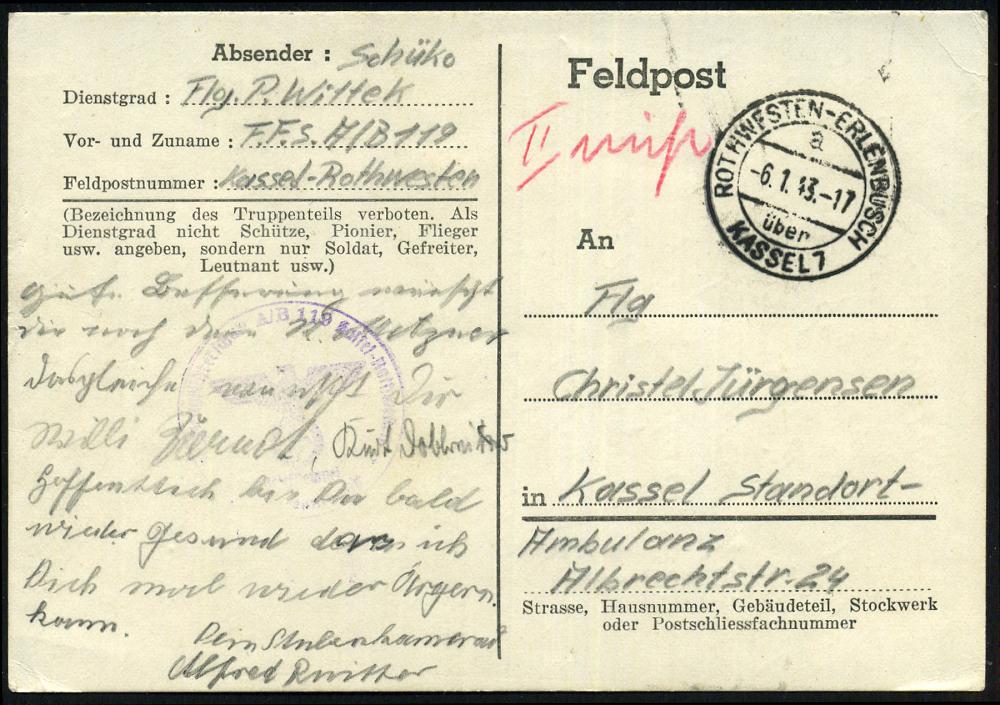 Absender : Schüko
Dienstgrad : Flg. P. Wittek
Vor- und Zuname : F.F.S. A/B 119
Feldpostnummer : Kassel-Rothwesten
(Bezeichnung des Truppenteils verboten. Als
Dienstgrad nicht Schütze, Pionier, Flieger
usw. angeben, sondern nur Soldat, Gefreiter,
Leutnant usw.)
gute Besserung wünscht
dir noch dein Metzner
Dasgleiche wünscht Dir
Willi Kurt
Hoffentlich bist Du bald
wieder Gesund dass ich
Dich mal wieder Ärgern
kann.
Dein Stubenkamerad
Alfred
A/B 119
Feldpost
II
ROTHWESTEN-ERLENBUSCH
a
-6.1.43.-17
über
KASSEL 7
An
Flg
Christel Jürgensen
in Kassel Standort-
Ambulanz
Albrechtstr. 24
Strasse, Hausnummer, Gebäudeteil, Stockwerk
oder Postschliessfachnummer